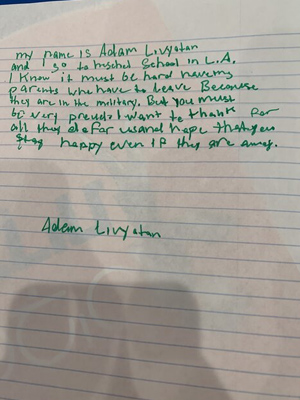 my name is Adam Livyatan
and I go to Heschel School in L.A.
I know it must be hard having
parents who have to leave Because
they are in the military. But you must
be very proud. I want to thank for
all they do for us and hope that you
stay happy even if they are away.
Adam Livyatan